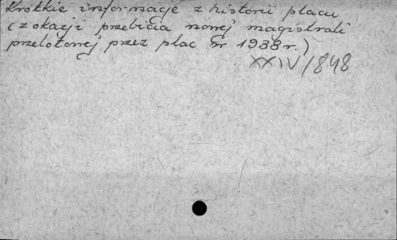 Krótkie informacje z historii placu
(z okazji przebicia nowej magistrali
przełożonej przez plac w 1938 r.)
XXIV/848